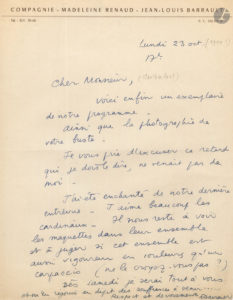 COMPAGNIE - MADELEINE RENAUD - JEAN-LOUIS BARRAULT
Lundi 23 oct
17h
Cher Monsieur,
voici enfin un exemplaire
de notre programme
ainsi que la photographie de
votre buste.
Je vous prie d'excuser ce retard
qui, je dois le dire, ne venait pas de
moi.
J'ai été enchanté de notre dernière
entrevue. J'aime beaucoup les
cardinaux. Il nous reste à voir
les maquettes dans leur ensemble
et à juger si cet ensemble est
aussi vigoureux en couleurs qu'un
carpaccio (ne le croyez-vous pas?)
Dès samedi je serai tout à vous
et
en dépit des
Respect et dévouement